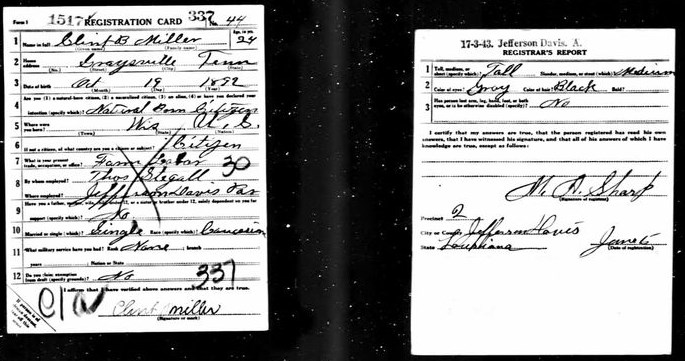 Form 1 1517 REGISTRATION CARD 337 No. 44
1 Name in full Clint B Miller Age, in yrs. 24
(Given name) (Family name)
2 Home address Graysville Tenn
(No.) (Street) (City) (State)
3 Date of birth Oct 19 1892
(Month) (Day) (Year)
4 Are you (1) a natural-born citizen, (2) a naturalized citizen, (3) an alien, (4) or have you declared your
intention (specify which)? Natural Born Citizen
5 Where were you born? Wis U. S.
(Town) (State) (Nation)
6 If not a citizen, of what country are you a citizen or subject? Citizen
7 What is your present trade, occupation, or office? Farm Labor 30
8 By whom employed? Thos Stegall
Where employed? Jefferson Davis Par
9 Have you a father, mother, wife, child under 12, or a sister or brother under 12, solely dependent on you for
support (specify which)? No
10 Married or single (which)? Single Race (specify which)? Caucasian
11 What military service have you had? Rank None ; branch
years Nation or State
12 Do you claim exemption from draft (specify grounds)? No
337
I affirm that I have verified above answers and that they are true.
Clint B Miller
(Signature or mark)
17-3-43. Jefferson Davis. A.
REGISTRAR'S REPORT
1 Tall, medium, or short (specify which)? Tall Slender, medium, or stout (which)? Medium
2 Color of eyes? Gray Color of hair? Black Bald?
3 Has person lost arm, leg, hand, foot, or both eyes, or is he otherwise disabled (specify)? No
I certify that my answers are true, that the person registered has read his own
answers, that I have witnessed his signature, and that all of his answers of which I have
knowledge are true, except as follows:
M. A. Sharp
(Signature of registrar)
Precinct 2
City or County Jefferson Davis
State Louisiana June 5
(Date of registration)